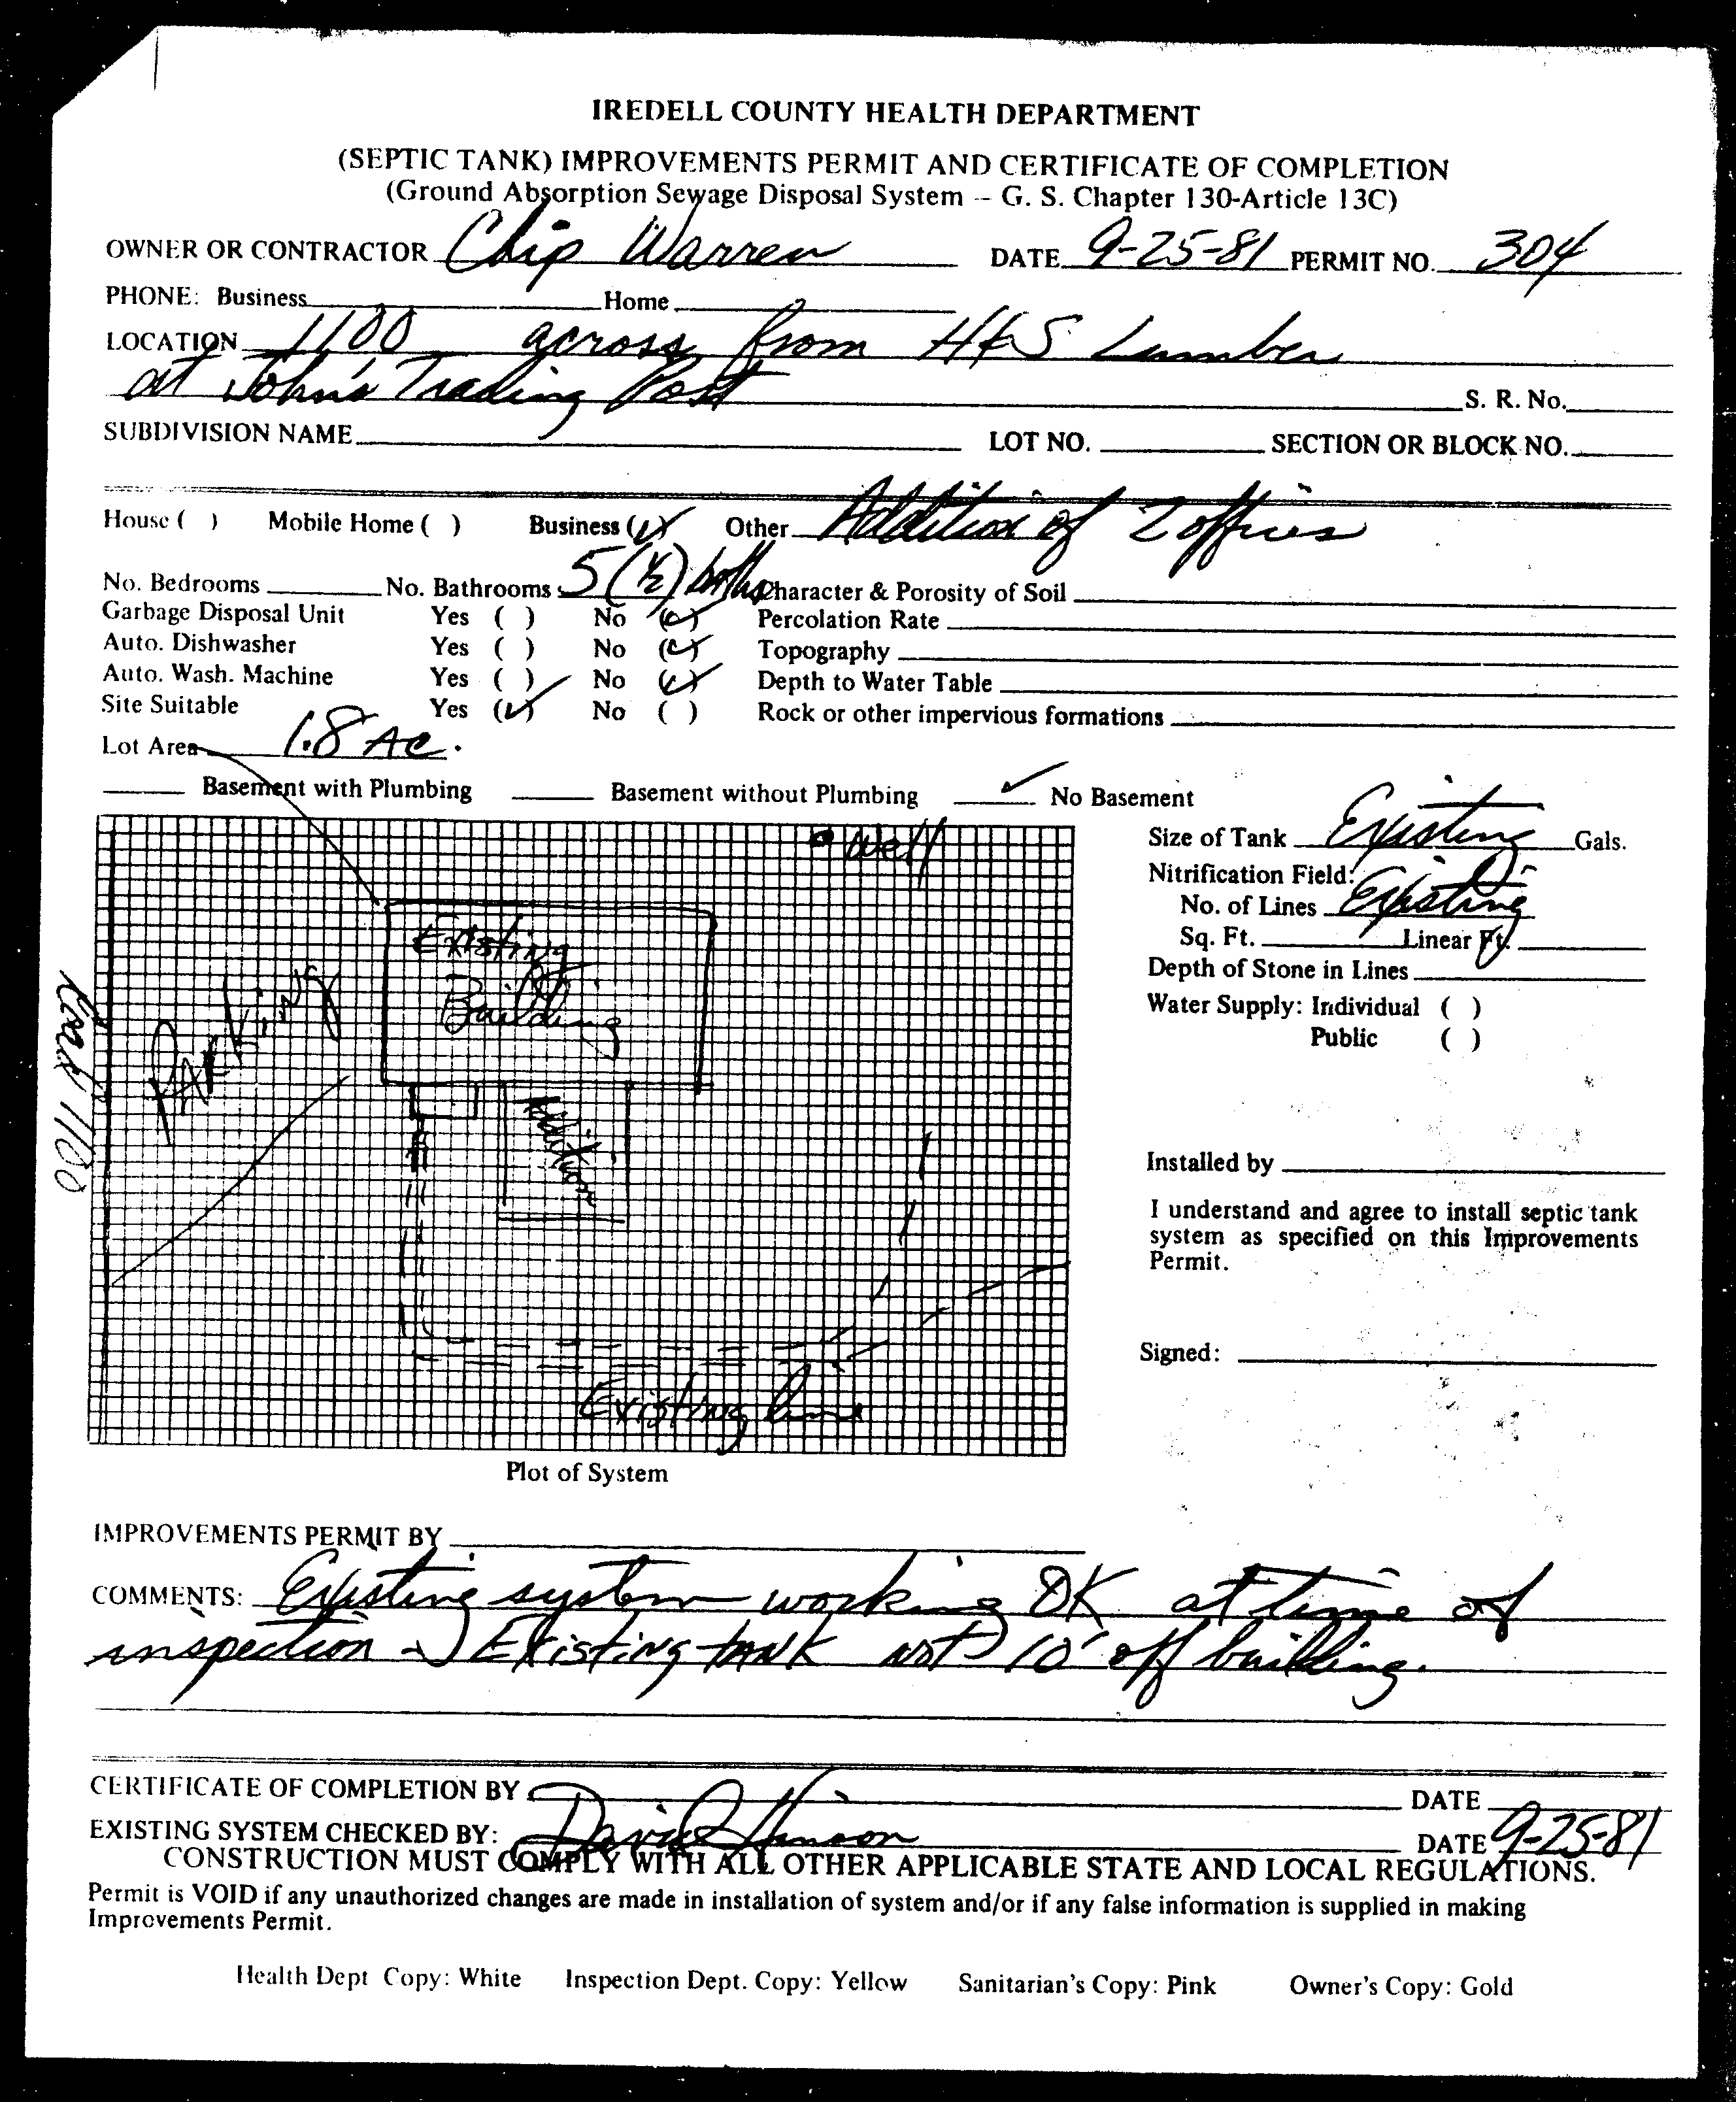 IREDELL COUNTY HEALTH DEPARTMENT
(SEPTIC TANK) IMPROVEMENTS PERMIT AND CERTIFICATE OF COMPLETION
(Ground Absorption Sewage Disposal System -- G. S. Chapter 130-Article 13C)
OWNER OR CONTRACTOR Chip Warren DATE 9-25-81 PERMIT NO. 304
PHONE: Business Home
LOCATION 1100 across from H&S Lumber
at John's Trading Post S. R. No.
SUBDIVISION NAME LOT NO. SECTION OR BLOCK NO.
House ( ) Mobile Home ( ) Business (✓) Other Addition of 2 offices
No. Bedrooms No. Bathrooms 5 (½) baths Character & Porosity of Soil
Garbage Disposal Unit Yes ( ) No (✓) Percolation Rate
Auto. Dishwasher Yes ( ) No (✓) Topography
Auto. Wash. Machine Yes ( ) No (✓) Depth to Water Table
Site Suitable Yes (✓) No ( ) Rock or other impervious formations
Lot Area 1.8 AC.
Basement with Plumbing Basement without Plumbing ✓ No Basement
Well
Existing
Building
Parking
Road 1100
Addition
Existing line
Plot of System
Size of Tank Existing Gals.
Nitrification Field:
No. of Lines Existing
Sq. Ft. Linear Ft.
Depth of Stone in Lines
Water Supply: Individual ( )
Public ( )
Installed by
I understand and agree to install septic tank
system as specified on this Improvements
Permit.
Signed:
IMPROVEMENTS PERMIT BY
COMMENTS: Existing system working OK at time of
inspection - Existing tank not 10' off building.
CERTIFICATE OF COMPLETION BY DATE
EXISTING SYSTEM CHECKED BY: David Hinson DATE 9-25-81
CONSTRUCTION MUST COMPLY WITH ALL OTHER APPLICABLE STATE AND LOCAL REGULATIONS.
Permit is VOID if any unauthorized changes are made in installation of system and/or if any false information is supplied in making
Improvements Permit.
Health Dept Copy: White Inspection Dept. Copy: Yellow Sanitarian's Copy: Pink Owner's Copy: Gold